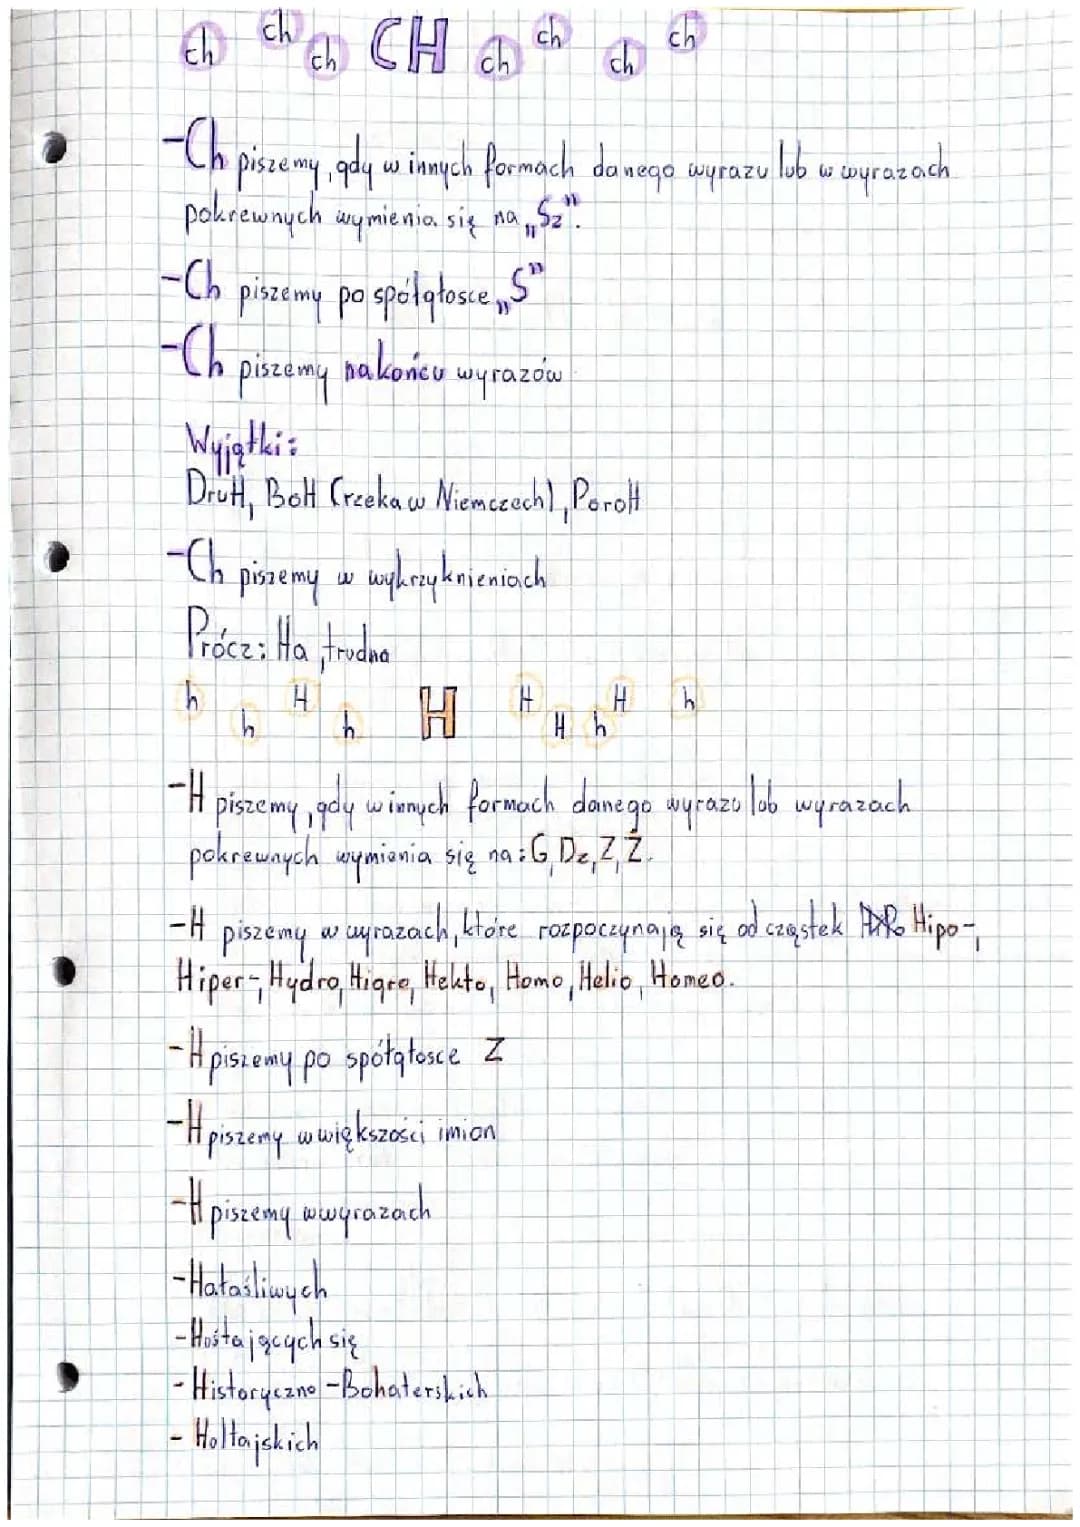 ch ch ch CH ch ch ch ch
-Ch piszemy, gdy w innych formach danego wyrazu lub w wyrazach
pokrewnych wymienia się na „Sz”.
-Ch piszemy po spółgłosce „S”
-Ch piszemy na końcu wyrazów
Wyjątki:
DruH, BoH (rzeka w Niemczech), ParoH
-Ch piszemy w wykrzyknieniach
Prócz: Ha, trudno
h h H h H H H h H h
-H piszemy, gdy w innych formach danego wyrazu lub wyrazach
pokrewnych wymienia się na: G, Dz, Z, Ż.
-H piszemy w wyrazach, które rozpoczynają się od cząstek Hipo-,
Hiper-, Hydro, Higro, Hekto, Homo, Helio, Homeo.
-H piszemy po spółgłosce Z
-H piszemy w większości imion
-H piszemy w wyrazach
-Hałaśliwych
-Huśtających się
-Historyczno-Bohaterskich
- Hultajskich